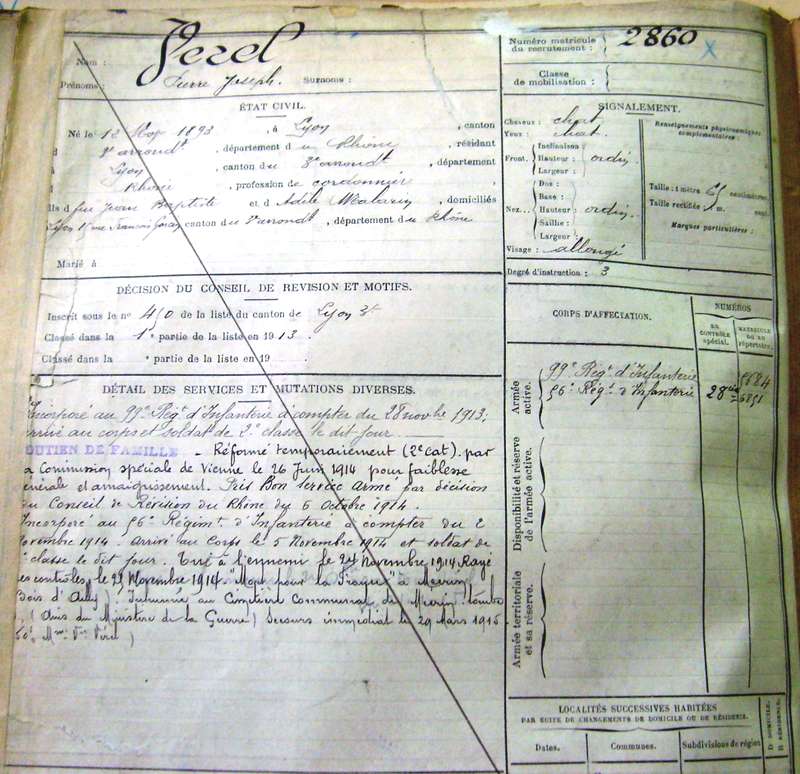 Nom : Perel
Prénoms : Pierre Joseph. Surnoms :
Numéro matricule du recrutement : 2860
Classe de mobilisation :
ÉTAT CIVIL.
Né le 12 1893, à Lyon, canton
d 2e arrondt, département du Rhône, résidant
à Lyon, canton du 3e arrondt, département
d Rhône, profession de cordonnier
fils d feu Jean Baptiste et d Adèle, domiciliés
Lyon rue canton du arrondt, département du Rhône
Marié à
SIGNALEMENT.
Cheveux : chat
Yeux : chat
Front. Inclinaison :
Hauteur : ordin.
Largeur :
Nez... Dos :
Base :
Hauteur : ordin.
Saillie :
Largeur :
Visage : allongé
Renseignements physionomiques complémentaires :
Taille : 1 mètre 65 centimètres.
Taille rectifiée : 1 m. cent.
Marques particulières :
Degré d'instruction : 3
DÉCISION DU CONSEIL DE RÉVISION ET MOTIFS.
Inscrit sous le no 450 de la liste du canton de Lyon 3e
Classé dans la 1e partie de la liste en 1913.
Classé dans la e partie de la liste en 19
CORPS D'AFFECTATION.
NUMÉROS
AU CONTRÔLE spécial.
MATRICULE OU AU répertoire.
Armée active.
99e Régt d'Infanterie 5684
56e Régt d'Infanterie 28e 6851
Disponibilité et réserve de l'armée active.
Armée territoriale et sa réserve.
DÉTAIL DES SERVICES ET MUTATIONS DIVERSES.
Incorporé au 99e Régt d'Infanterie à compter du 28 novbre 1913;
arrivé au corps et soldat de 2e classe le dit jour.
SOUTIEN DE FAMILLE - Réformé temporairement (2e cat.) par
la Commission spéciale de Vienne le 26 Juin 1914 pour faiblesse
générale et amaigrissement. Pris Bon service Armé par décision
du Conseil de Révision du Rhône du 6 Octobre 1914.
Incorporé au 56e Régimt d'Infanterie à compter du 2
Novembre 1914. Arrivé au Corps le 5 Novembre 1914 et soldat de
2e classe le dit jour. Tué à l'ennemi le 24 Novembre 1914 Rayé
des contrôles le 25 Novembre 1914. "Mort pour la France" à
(Bois d'Ailly). Inhumé au Cimetière Communal de tombe
(Avis du Ministère de la Guerre) Secours immédiat le 29 Mars 1915
150f Mme Vve Perel)
LOCALITÉS SUCCESSIVES HABITÉES
PAR SUITE DE CHANGEMENTS DE DOMICILE OU DE RÉSIDENCE.
Dates. Communes. Subdivisions de région
D DOMICILE.
R RÉSIDENCE.